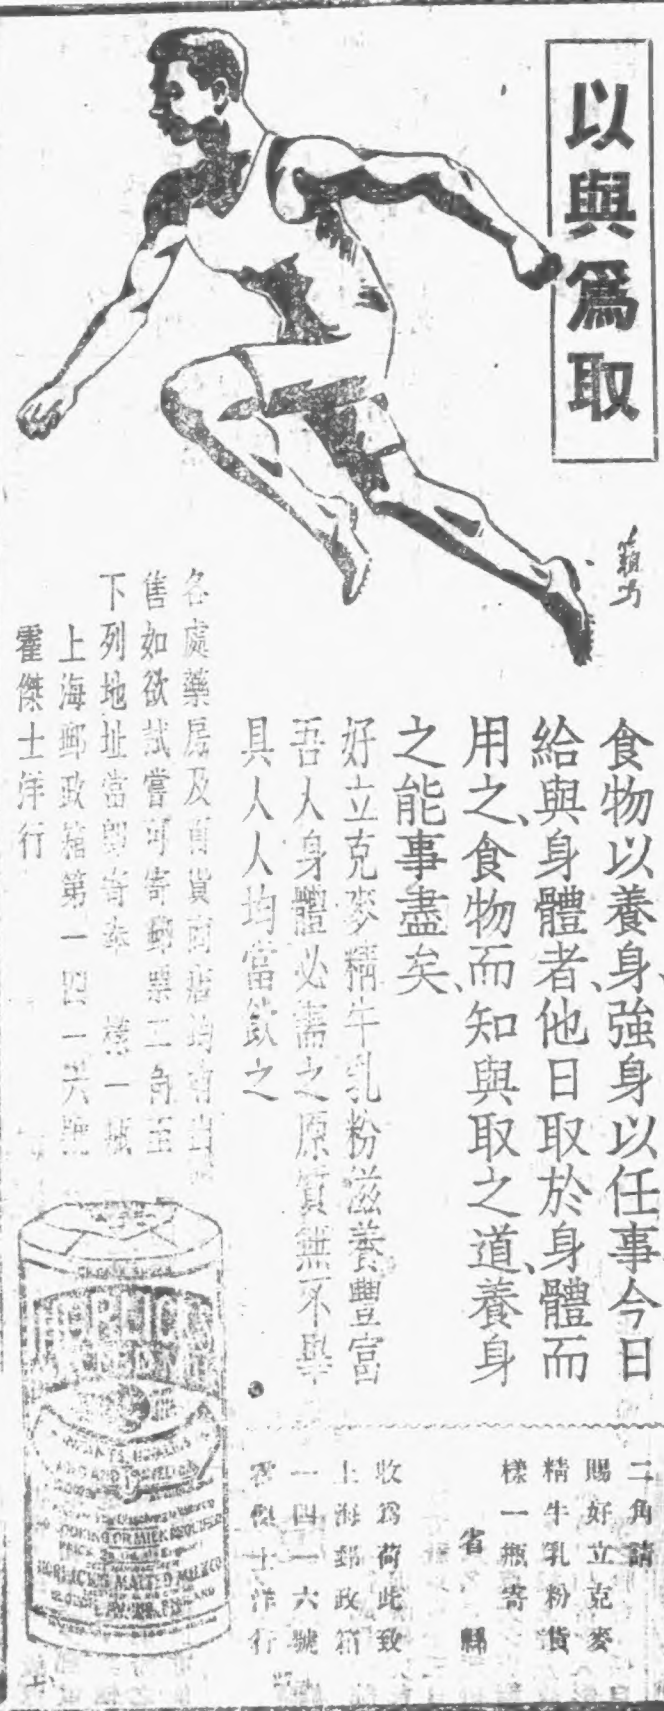 以與爲取
食物以養身、強身以任事、今日
給與身體者、他日取於身體而
用之、食物而知與取之道、養身
之能事盡矣、
好立克麥精牛乳粉滋養豐富
吾人身體必需之原質無不畢
具人人均當飲之
各處藥房及百貨商店均有出
售如欲試嘗可寄郵票二角至
下列地址當卽寄奉 樣一瓶
上海郵政箱第一四一六號
霍傑士洋行
HORLICK'S
HORLICK'S MALTED MILK CO.
二角請
賜好立克麥
精牛乳粉貨
樣一瓶寄
省 縣
收爲荷此致
上海郵政箱
一四一六號
霍傑士洋行